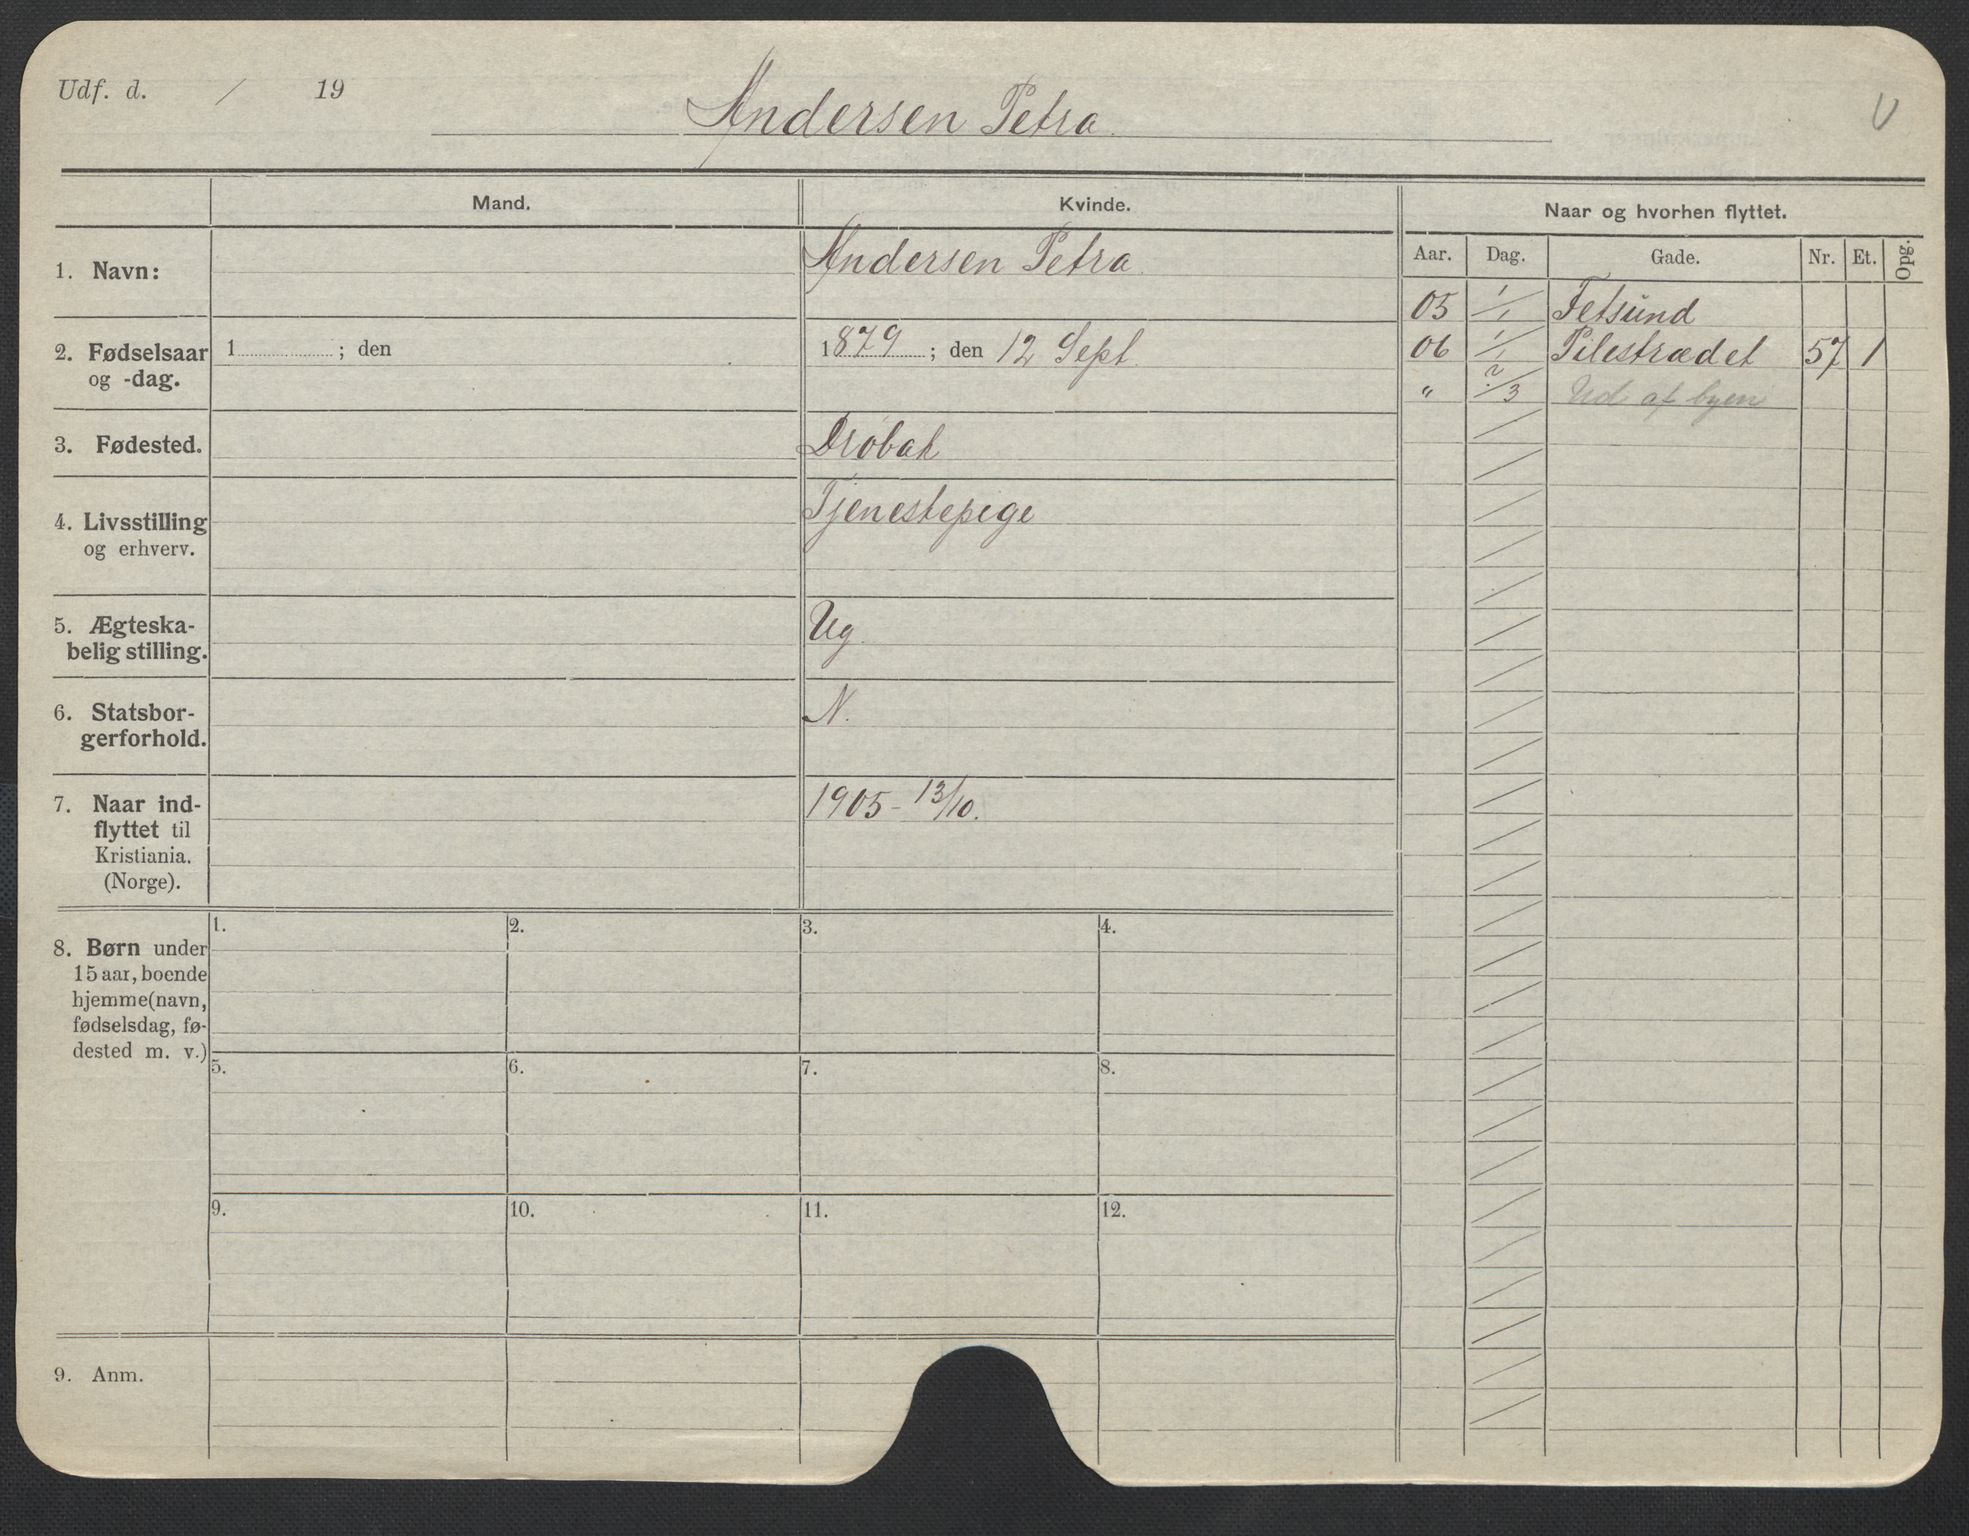 Udf. d. / 19
Andersen Petra
U
Mand.
Kvinde.
Naar og hvorhen flyttet.
Aar. Dag. Gade. Nr. Et. Opg.
1. Navn:
Andersen Petra
05 1/1 Fetsund
2. Fødselsaar
og -dag.
1 ; den
1879 ; den 12 Sept
06 1/1 Pilestrædet 57 1
" ?/3 Ud af byen
3. Fødested.
Drøbak
4. Livsstilling
og erhverv.
Tjenestepige
5. Ægteska-
belig stilling.
Ug.
6. Statsbor-
gerforhold.
N.
7. Naar ind-
flyttet til
Kristiania.
(Norge).
1905 - 13/10.
8. Børn under
15 aar, boende
hjemme (navn,
fødselsdag, fø-
dested m. v.)
1. 2. 3. 4.
5. 6. 7. 8.
9. 10. 11. 12.
9. Anm.